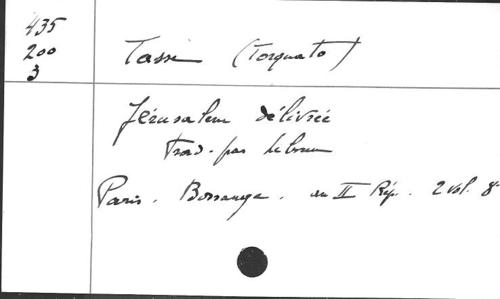 435
200
3
Tasse (Torquato)
Jérusalem délivrée
Trad. par Lebrun
Paris. Bossange. an II Rép. 2 vol. 8°